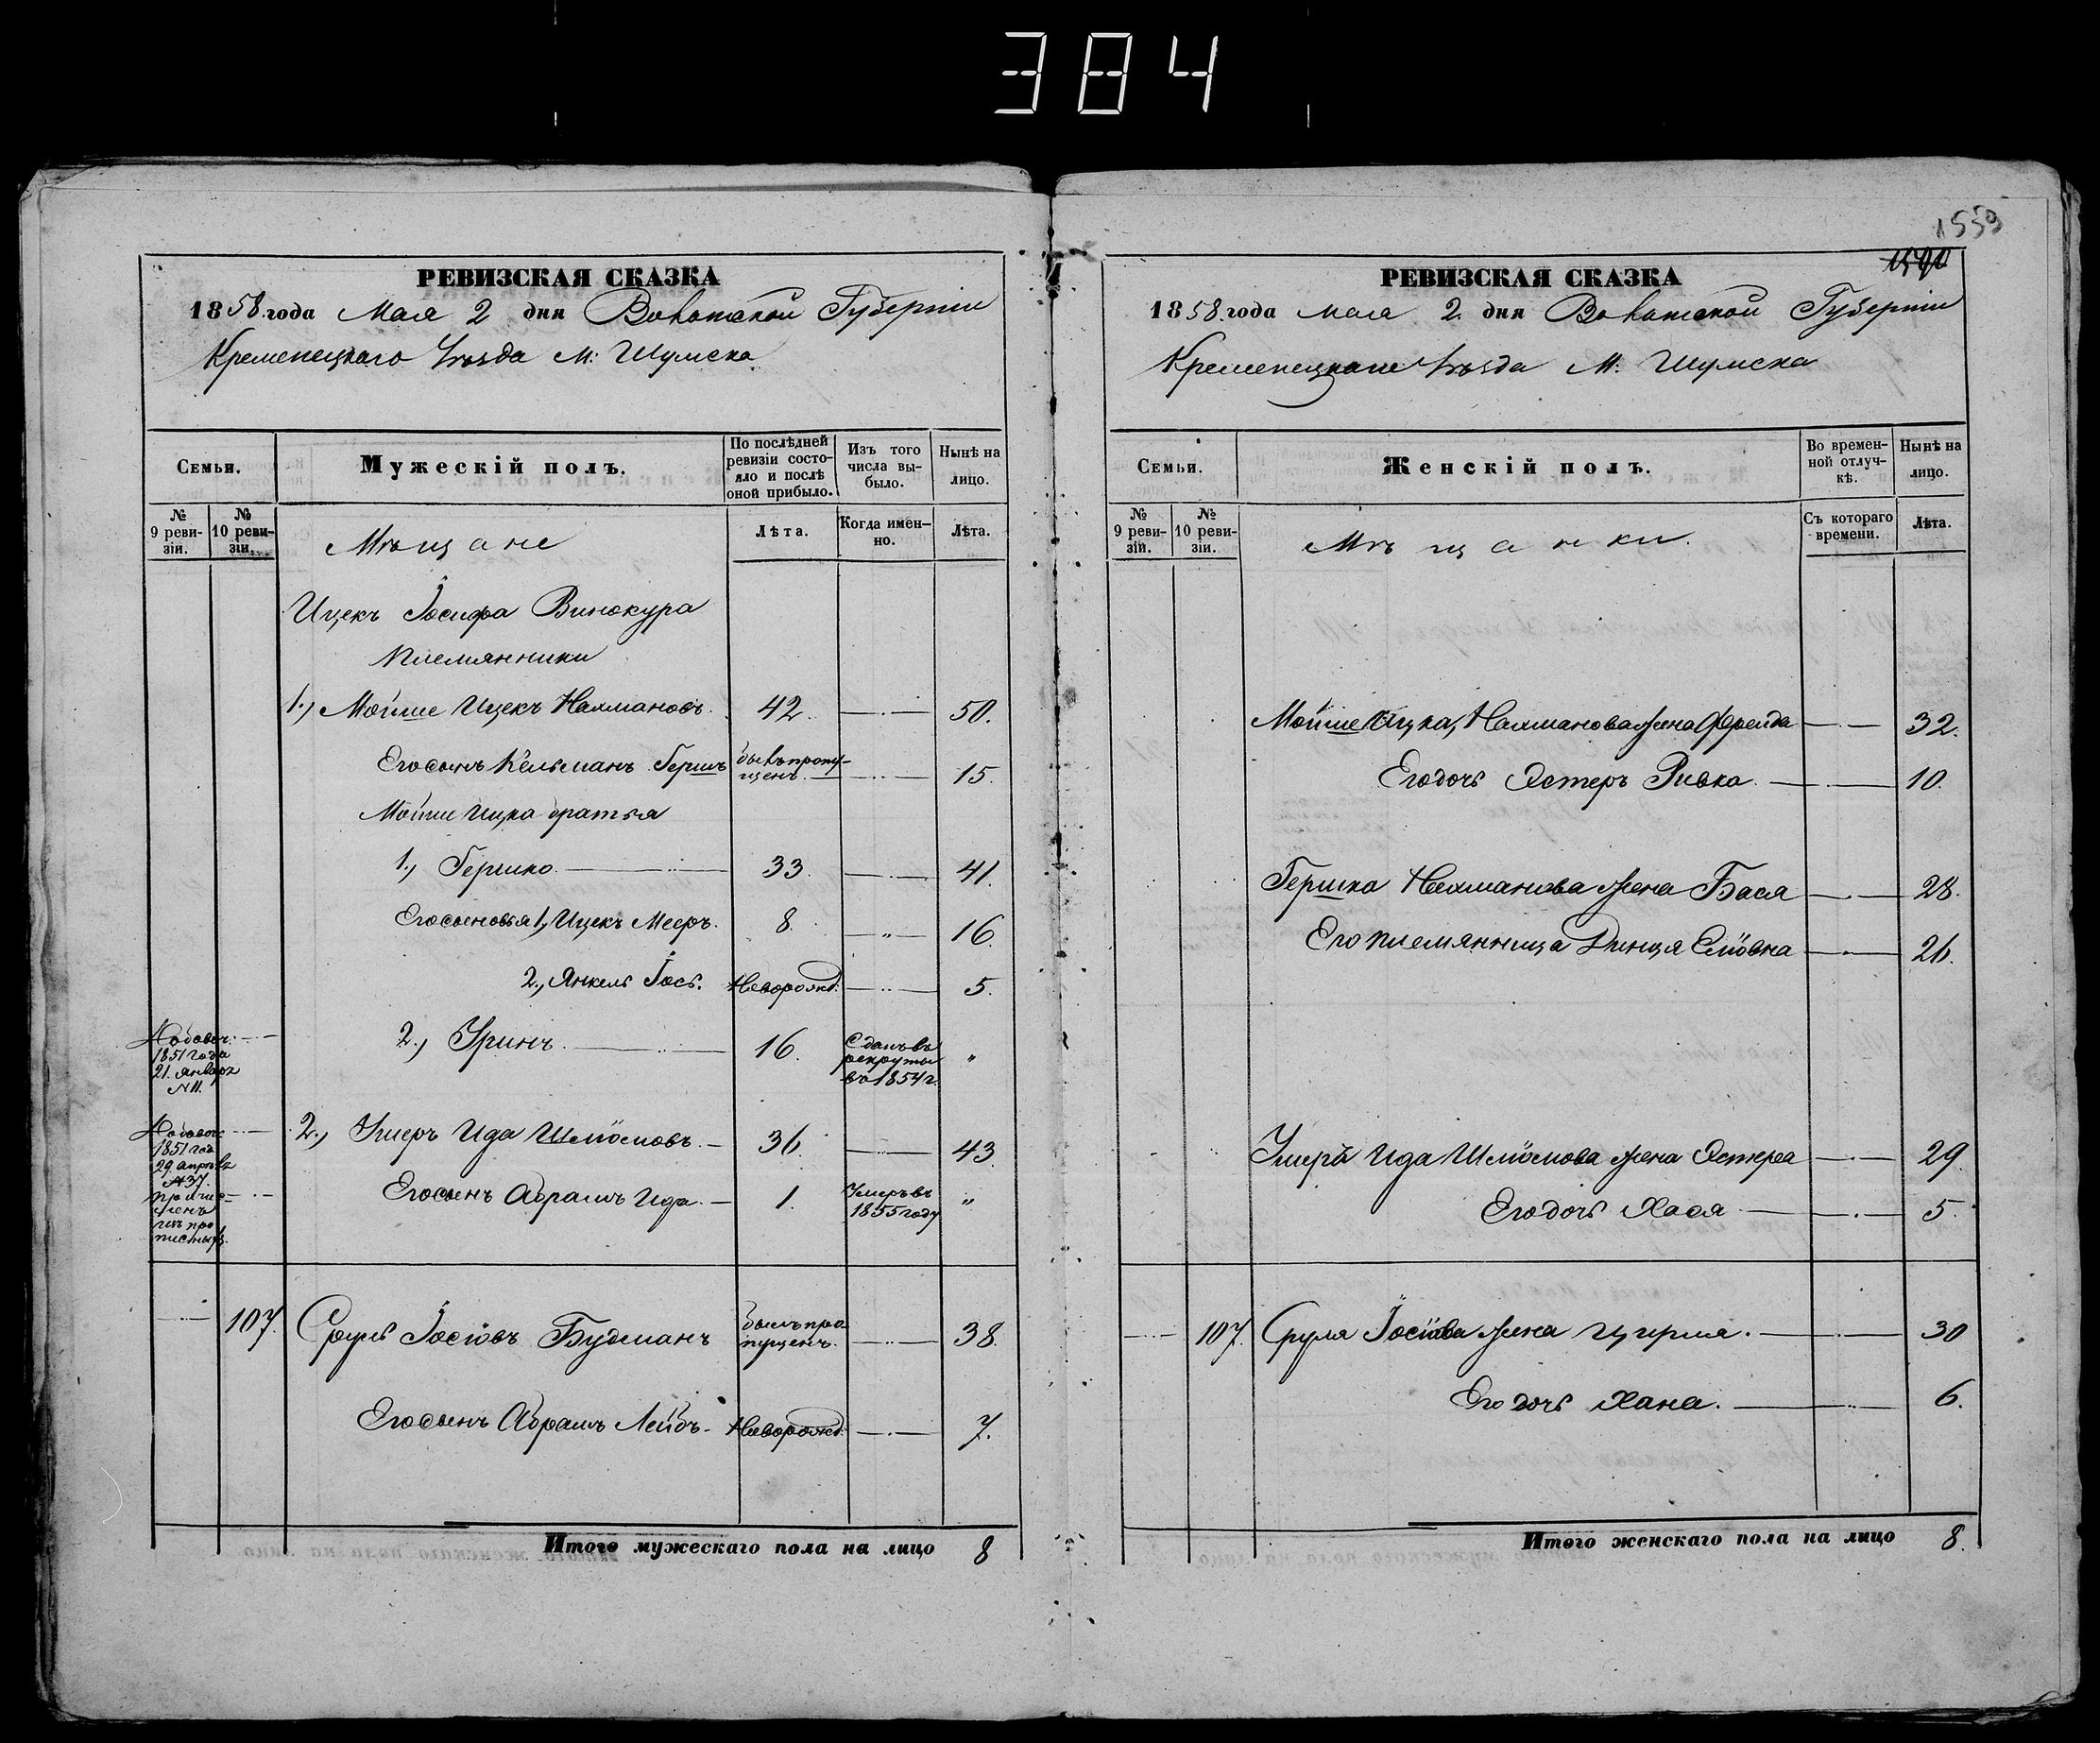 384
РЕВИЗСКАЯ СКАЗКА
1858 года Мая 2 дня Волынской Губерніи
Кременецкаго Уѣзда М: Шумска
Семьи.
Мужескій полъ.
По послѣдней ревизіи состояло и послѣ оной прибыло.
Изъ того числа выбыло.
Нынѣ на лицо.
№ 9 ревизіи.
№ 10 ревизіи.
Мѣщане
Лѣта.
Когда именно.
Лѣта.
Ицекъ Іосифа Винокура
Племянники
1., Мойше Ицекъ Нахмановъ. 42. 50.
Его сынъ Кельманъ Гершъ былъ пропущенъ 15.
Мойше Ицка братья
1., Гершко 33. 41.
Его сыновья 1, Ицекъ Мееръ. 8. „ 16.
2., Янкель Іось. Новорожд. 5.
Добавоч. 1851 года 21. Января N 11.
2., Уринъ 16. Сданъ въ рекруты въ 1854 г. „
Добавоч. 1851 год 29 апрѣля № 37. причисленъ изъ прописныхъ.
2., Умеръ Ида Шлiомовъ 36. 43.
Его сынъ Абрамъ Ида 1. Умеръ въ 1855 году „
107. Сруль Іосіовъ Будманъ былъ пропущенъ. 38.
Его сынъ Абрамъ Лейбъ Новорожд. 7.
Итого мужескаго пола на лицо 8
1559
РЕВИЗСКАЯ СКАЗКА
1858 года мая 2. дня Волынской Губерніи
Кременецкаго Уѣзда М: Шумска
Семьи.
Женскій полъ.
Во временной отлучкѣ.
Нынѣ на лицо.
№ 9 ревизіи.
№ 10 ревизіи.
Мѣщанки.
Съ котораго времени.
Лѣта.
Мойше Ицка, Нахманова жена Фрейда 32.
Его дочь Эстеръ Ривка. 10.
Гершка Нахманова жена Бася 28.
Его племянница Динця 26.
Ида Шлiомова жена Эстера 29.
Его дочь Хася 5.
107. Сруля Іосіова жена Цирля. 30
Его дочь Хана. 6.
Итого женскаго пола на лицо 8.